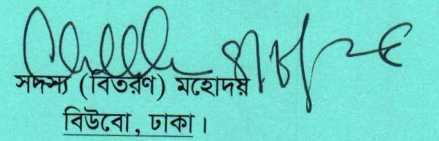 সদস্য (বিতরণ) মহোদয়
বিউবো, ঢাকা।